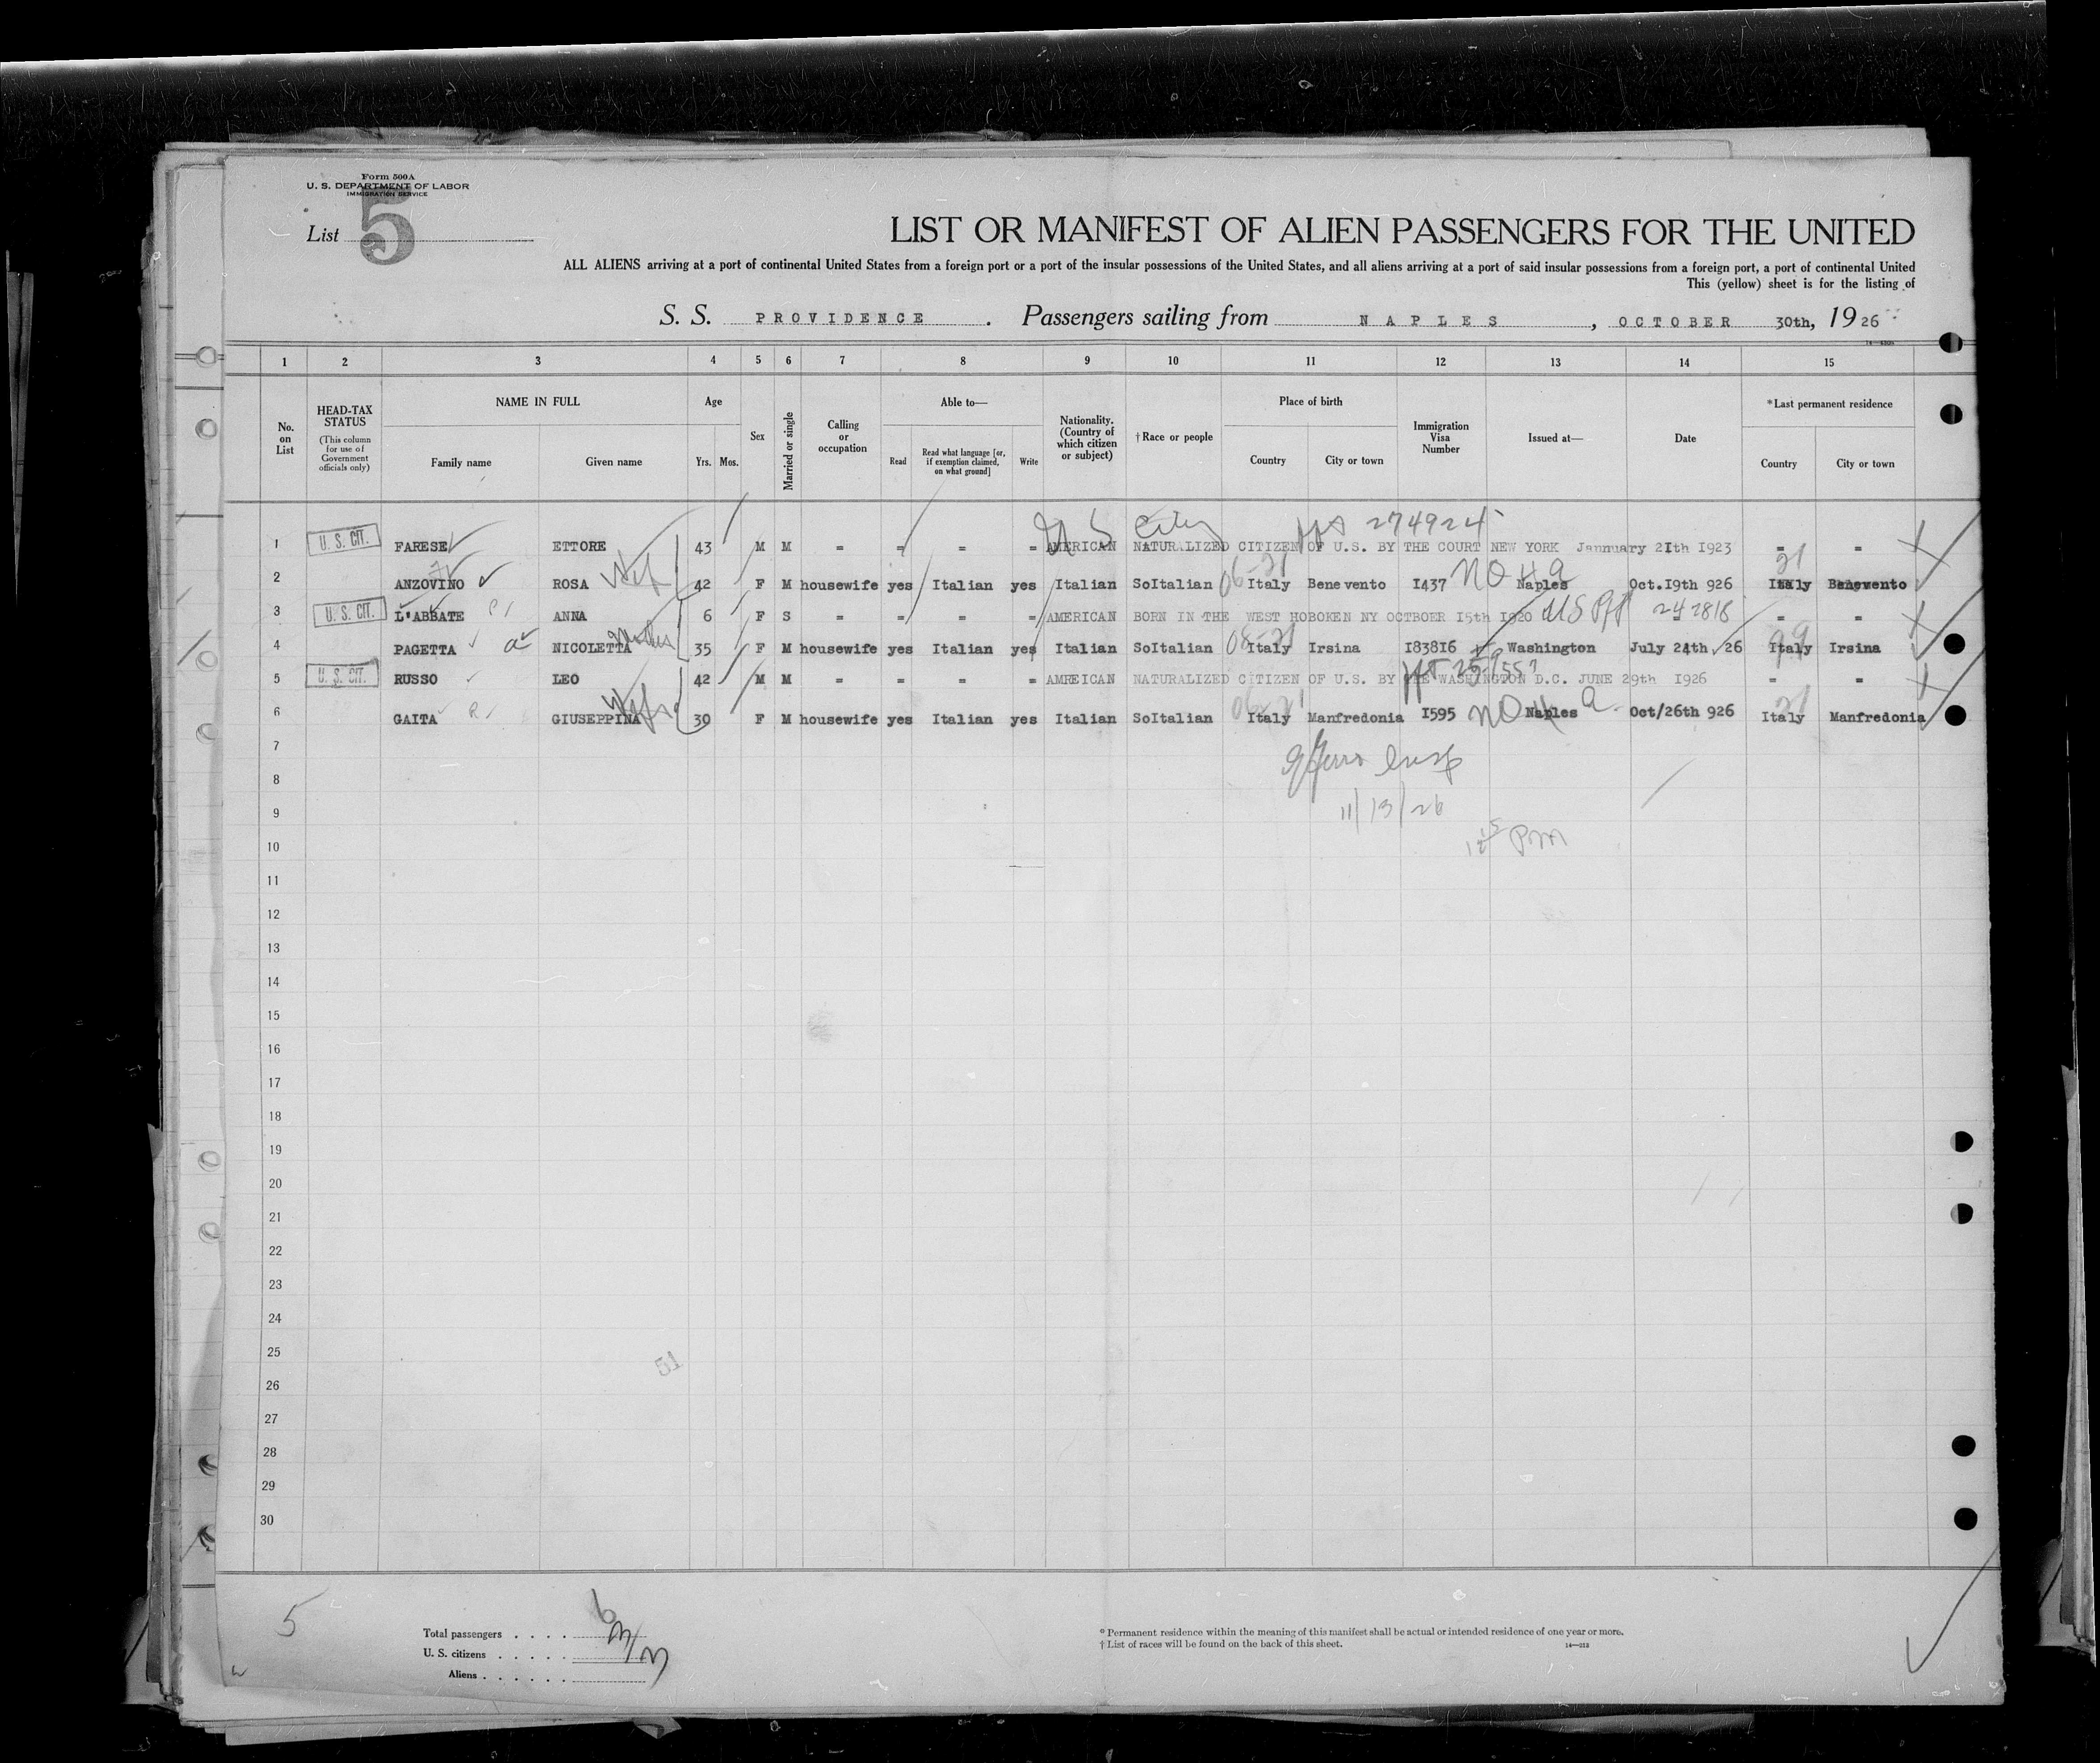 Form 500A
U. S. DEPARTMENT OF LABOR
IMMIGRATION SERVICE
List 5
LIST OR MANIFEST OF ALIEN PASSENGERS FOR THE UNITED
ALL ALIENS arriving at a port of continental United States from a foreign port or a port of the insular possessions of the United States, and all aliens arriving at a port of said insular possessions from a foreign port, a port of continental United
This (yellow) sheet is for the listing of
S. S. PROVIDENCE. Passengers sailing from NAPLES, OCTOBER 30th, 1926
1 2 3 4 5 6 7 8 9 10 11 12 13 14 15
No. on List
HEAD-TAX STATUS
(This column for use of Government officials only)
NAME IN FULL
Family name Given name
Age
Yrs. Mos.
Sex
Married or single
Calling or occupation
Able to—
Read
Read what language [or, if exemption claimed, on what ground]
Write
Nationality. (Country of which citizen or subject)
†Race or people
Place of birth
Country City or town
Immigration Visa Number
Issued at—
Date
*Last permanent residence
Country City or town
U S City 274924
1 U. S. CIT. FARESE ETTORE 43 M M = = = = AMERICAN NATURALIZED CITIZEN OF U.S. BY THE COURT NEW YORK Jannuary 2Ith I923 = =
2 ANZOVINO ROSA Wife 42 F M housewife yes Italian yes Italian SoItalian Italy Benevento I437 NO 4a Naples Oct.I9th 926 Italy Benevento
3 U. S. CIT. L'ABBATE ANNA 6 F S = = = = AMERICAN BORN IN THE WEST HOBOKEN NY OCTBOER I5th I920 US PPT 242818 = =
4 PAGETTA NICOLETTA Mother 35 F M housewife yes Italian yes Italian SoItalian 08-21 Italy Irsina I838I6 Washington July 24th 26 Italy Irsina
5 U. S. CIT. RUSSO LEO 42 M M = = = = AMREICAN NATURALIZED CITIZEN OF U.S. BY THE WASHINGTON D.C. JUNE 29th I926 = =
6 GAITA GIUSEPPINA Wife 39 F M housewife yes Italian yes Italian SoItalian Italy Manfredonia I595 NO 4 a Naples Oct/26th 926 Italy Manfredonia
7
8
11/13/26
9
PM
10
11
12
13
14
15
16
17
18
19
20
21
22
23
24
25
51
26
27
28
29
30
5
Total passengers . . . . 6
U. S. citizens . . . . . 3
Aliens . . . . . . 3
* Permanent residence within the meaning of this manifest shall be actual or intended residence of one year or more.
† List of races will be found on the back of this sheet. 14—213